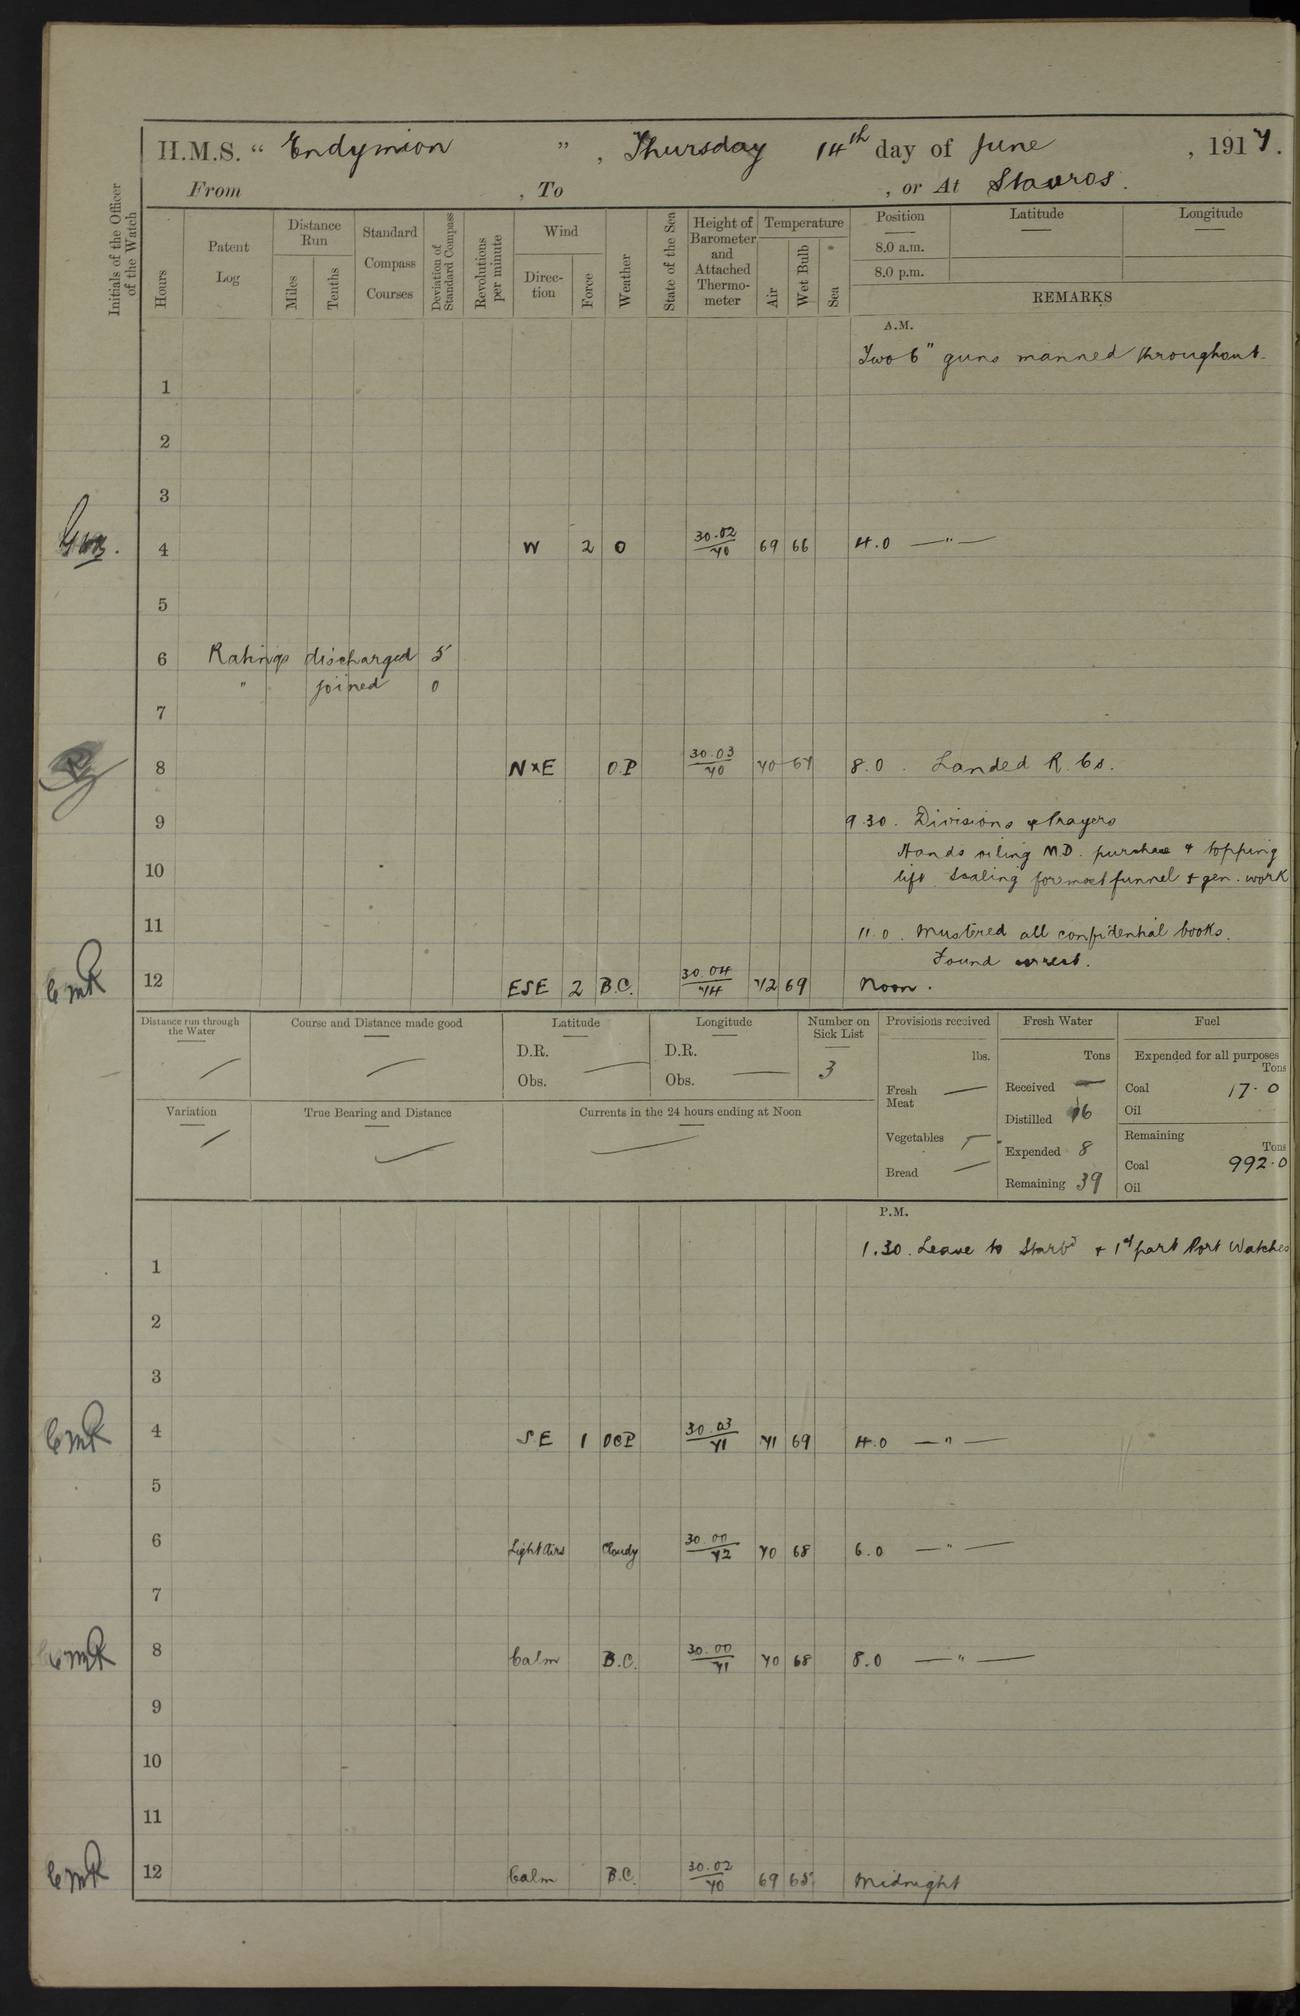 H.M.S. “ Endymion ” , Thursday 14th day of June , 1917.
From , To , or At Stavros.
Initials of the Officer of the Watch
Hours
Patent Log
Distance Run
Miles
Tenths
Standard Compass Courses
Deviation of Standard Compass
Revolutions per minute
Wind
Direc-tion
Force
Weather
State of the Sea
Height of Barometer and Attached Thermo-meter
Temperature
Air
Wet Bulb
Sea
Position
8.0 a.m.
8.0 p.m.
Latitude
Longitude
REMARKS
A.M.
Two 6" guns manned throughout.
1
2
3
4 W 2 O 30.02/70 69 66 4.0 —"—
5
6 Ratings discharged 5
" joined 0
7
8 N x E O.P 30.03/70 70 67 8.0 . Landed R.Cs.
9 9.30. Divisions & Prayers
Hands oiling M.D. purchase & topping
10 lift. Scaling foremost funnel & gen. work
11 11.0. Mustered all confidential books.
Found correct.
CMR 12 ESE 2 B.C. 30.04/74 72 69 Noon.
Distance run through the Water
Course and Distance made good
Latitude
D.R.
Obs.
Longitude
D.R.
Obs.
Number on Sick List
3
Provisions received
lbs.
Fresh Meat —
Vegetables —
Bread —
Fresh Water
Tons
Received —
Distilled 16
Expended 8
Remaining 39
Fuel
Expended for all purposes
Tons
Coal 17.0
Oil
Remaining
Tons
Coal 992.0
Oil
Variation
True Bearing and Distance
Currents in the 24 hours ending at Noon
P.M.
1.30. Leave to Starbd & 1st part Port Watches
1
2
3
CMR 4 SE 1 OCP 30.03/71 71 69 4.0 —"—
5
6 Light Airs Cloudy 30.00/72 70 68 6.0 —"—
7
CMR 8 Calm B.C. 30.00/71 70 68 8.0 —"—
9
10
11
CMR 12 Calm B.C. 30.02/70 69 65 Midnight